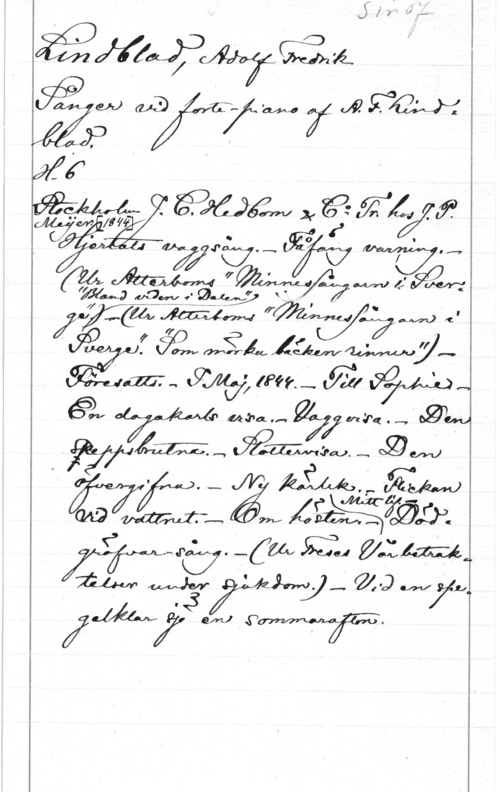 Lindblad, Adolf Fredrik
Sånger vid forte-piano af A. F. Lind-
blad.
H. 6
Stockholm J. C. Hedbom & C:o Tr. hos J. P.
Meijer, [1844]
Hjertats vaggsång. – Fåfäng varning. –
(Ur Atterboms "Minnessångarn i Sver-
"Bland viden i Dalen"
ge") – (Ur Atterboms "Minnessångarn i
Sverge". "Som mörka bäcken rinner") –
Föresatts. – 5 Maj, 1844. – Till Sophie –
En dagakarls visa. – Vaggvisa. – Den
skeppsbrutna. – Slottervisa. – Den
öfvergifna. – Ny kärlek. – Flickan
Mitt lif –
vid vattnet. – Om hösten. – Död-
gräfvar-sång. – (Ur Freses Vår betrak-
telser under sjukdom.) – Vid en spe-
gelklar sjö en sommarafton.